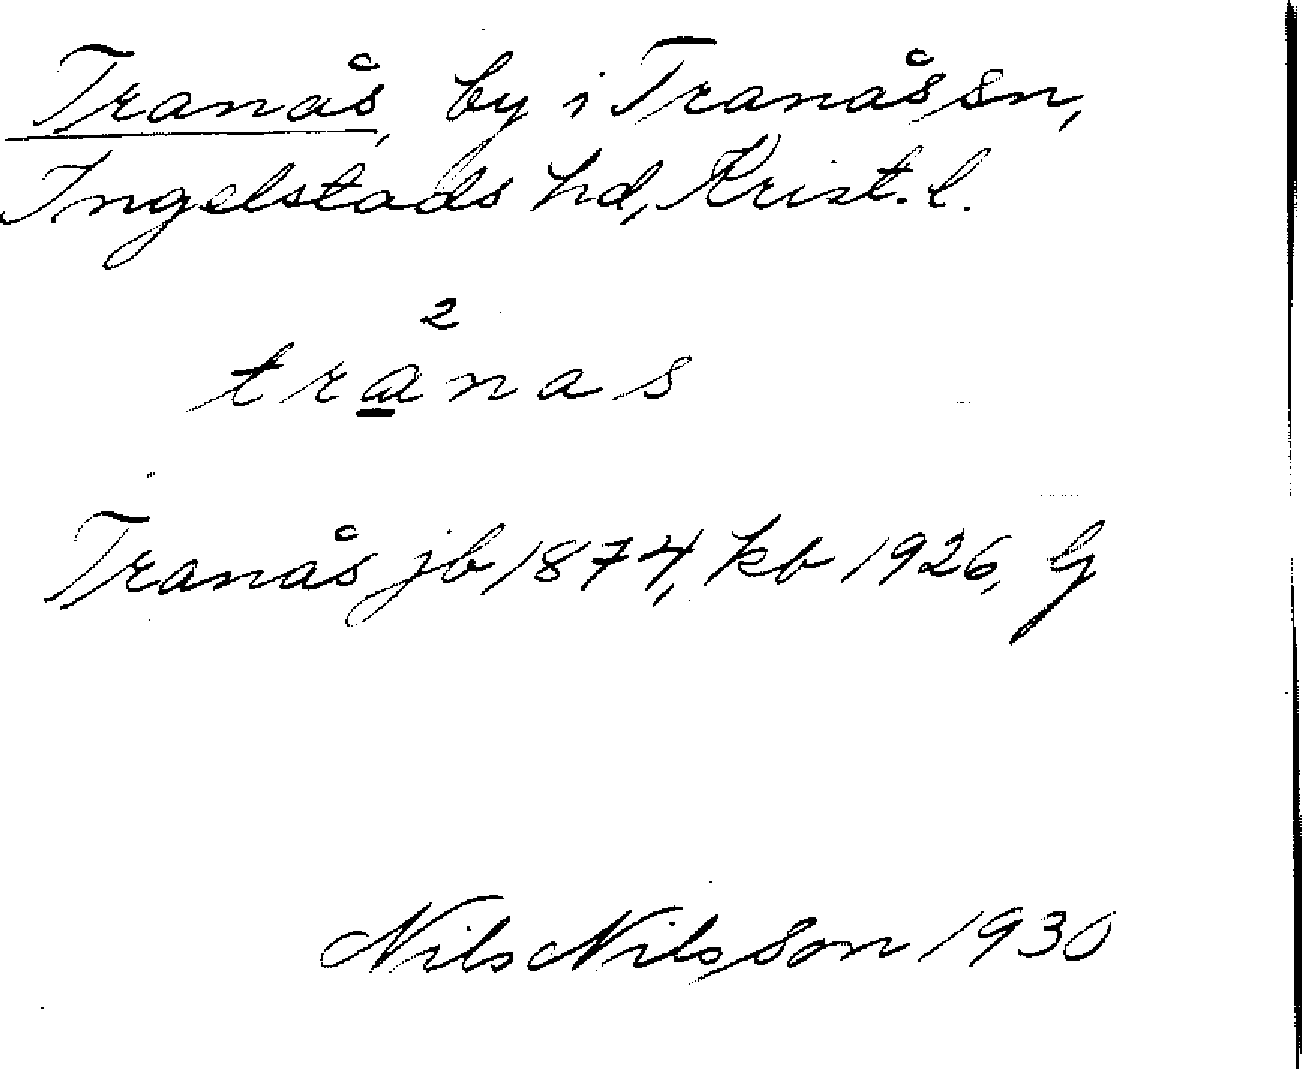 Tranås, by i Tranås sn,
Ingelstads hd, Krist. l.
2
tranas
Tranås jb 1874, kb 1926, G
Nils Nilsson 1930